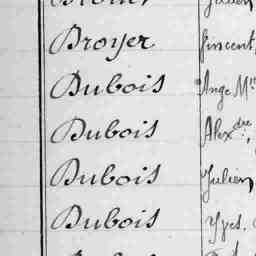 Broyer Vincent,
Dubois Ange M
Dubois Alex dre,
Dubois Julien
Dubois Yves.